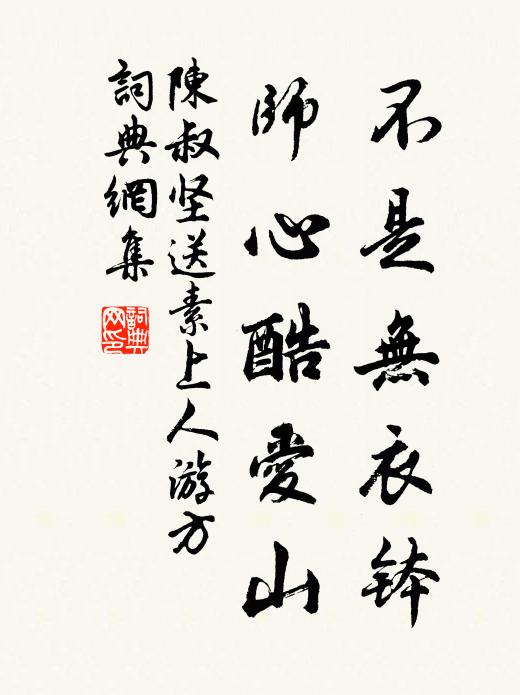 不是無衣鉢
師心酷愛山
陳叔坚送素上人游方
詞典網集
詞典網印